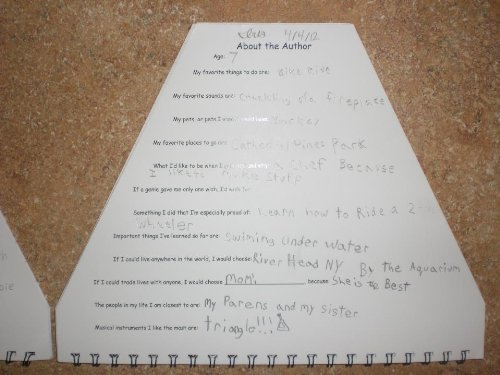 4/4/12
About the Author
Age: 7
My favorite things to do are: Bike Ride
My favorite sounds are: of a fireplace
My pets, or pets I
My favorite places to go are: Pines Park
What I'd like to be when I a Chef Because
I like to Make Stuff
If a genie gave me only one wish, I'd wish for
Something I did that I'm especially proud of: Learn how to Ride a 2-
Wheeler
Important things I've learned so far are: Swiming Under Water
If I could live anywhere in the world, I would choose: River Head NY By the Aquarium
If I could trade lives with anyone, I would choose Mom because She is the Best
The people in my life I am closest to are: My Parens and my sister
Musical instruments I like the most are: triangle!!!